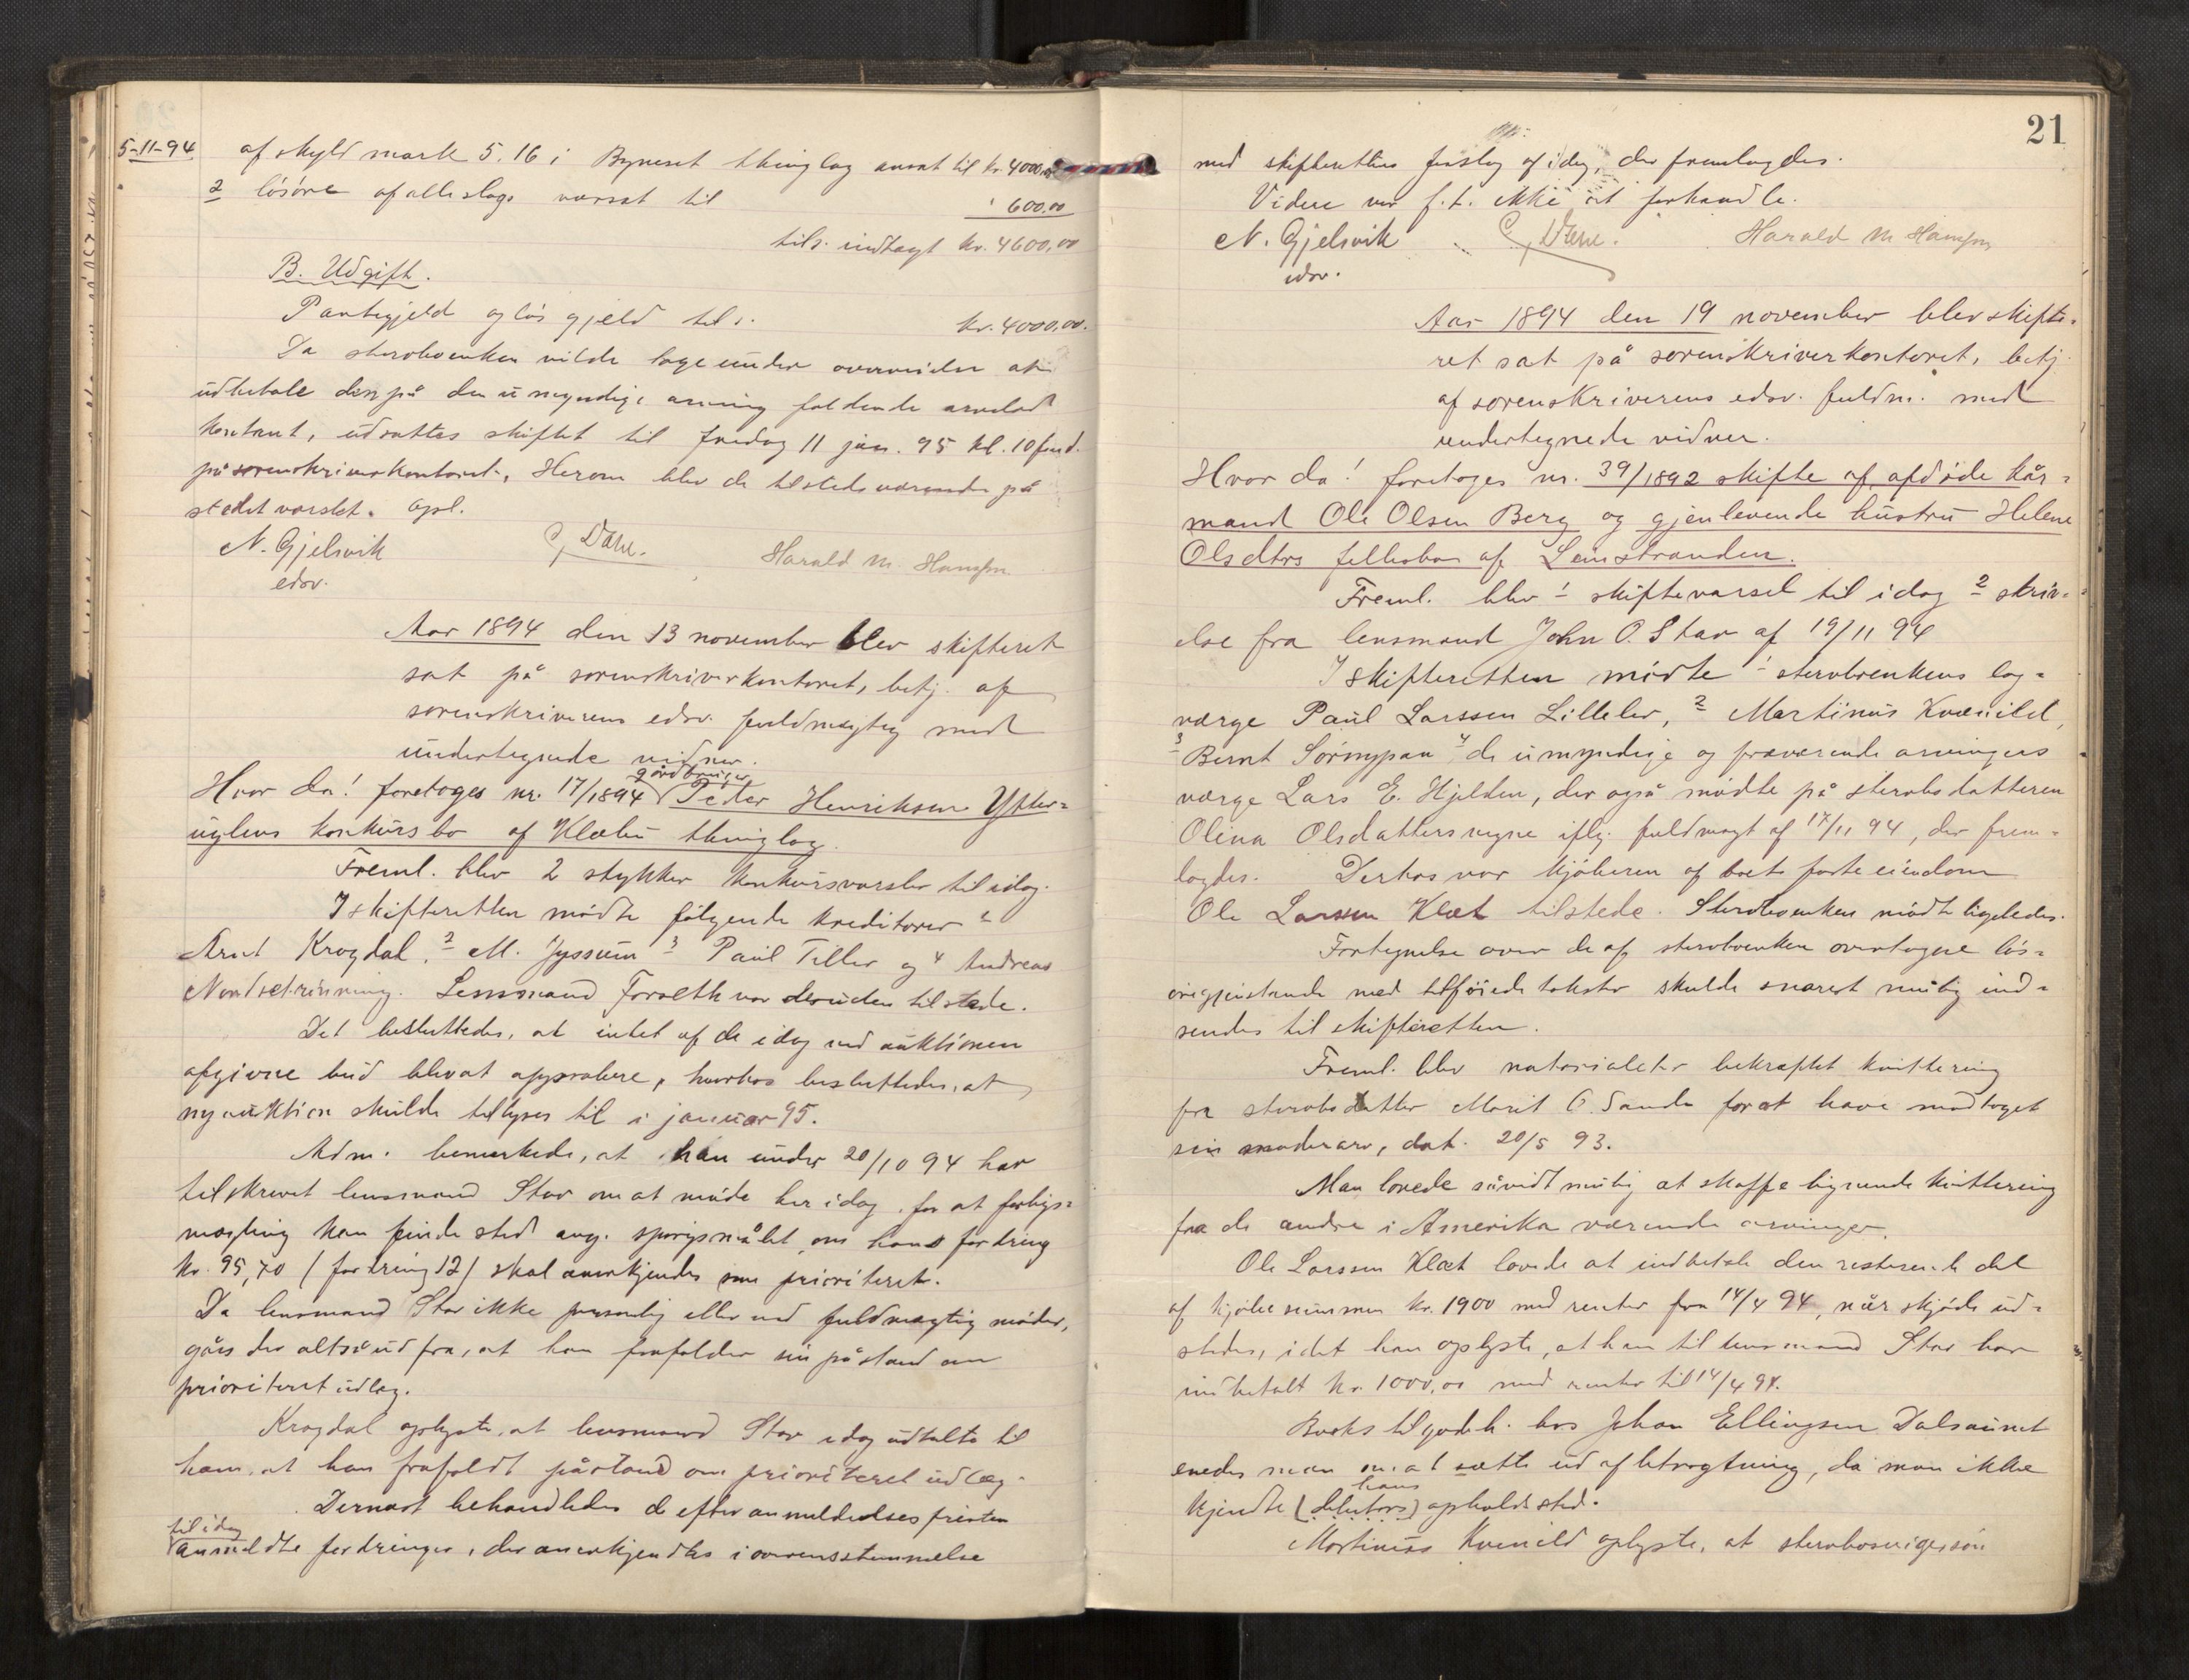 5-11-94 af skyld mark 5.16 i Bynesset thinglag ansat til kr. 4000,00
2 løsøre af alle slags værsat til " 600,00
tils. indtægt kr. 4600,00
B. Udgift.
Pantegjeld og løs gjeld tils. kr. 4000,00.
Da stervboenken vilde tage under overveielse at
udbetale den på den umyndige arving faldende arvelod
kontant, udsattes skiftet til fredag 11 jan. 95 kl. 10 fmd.
på sorenskriverkontoret. Herom blev de tilstedeværende på
stedet varslet. Opl.
N. Gjelsvik
edsv.
Harald M. Hansen
Aar 1894 den 13 november blev skifteret
sat på sorenskriverkontoret, betj. af
sorenskriverens edsv. fuldmægtig med
undertegnede vidner.
Hvor da! foretoges nr. 17/1894 gårdbruger Peter Henriksen Ytter-
uglens konkursbo af Klæbu thinglag.
Freml. blev 2 stykker konkursvarsler til idag.
I skifteretten mødte følgende kreditorer 1
Arnt Krogdal, 2 M. Jyssum 3 Paul Tiller og 4 Andreas
Nordsetrønning. Lensmand Forseth var desuden tilstede.
Det besluttedes, at intet af de idag ved auktionen
afgivne bud blev at approbere, hvorhos besluttedes, at
ny auktion skulde tillyses til i januar 95.
Adm. bemerkede, at han under 20/10 94 har
tilskrevet lensmand Stav om at møde her idag, for at forligs-
mægling kan finde sted ang. spørgsmålet, om hans fordring
kr. 95,70 (fordring 12) skal anerkjendes som prioriteret.
Da lensmand Stav ikke personlig eller ved fuldmægtig møder,
gåes der altså ud fra, at han frafalder sin påstand om
prioriteret udlæg.
Krogdal oplyste, at lensmand Stav idag udtalte til
ham, at han frafaldt påstand om prioriteret udlæg.
Dernæst behandledes de efter anmeldelsesfristen
til idag
anmeldte fordringer, der anerkjendtes i overensstemmelse
21
med skifterettens forslag af idag, der fremlagdes.
Videre var f.t. ikke at forhandle.
N. Gjelsvik
edsv.
Harald M Hansen
Aar 1894 den 19 november blev skifte-
ret sat på sorenskriverkontoret, betj.
af sorenskriverens edsv. fuldm. med
undertegnede vidner.
Hvor da! foretoges nr. 39/1892 skifte af afdøde kår-
mand Ole Olsen Berg og gjenlevende hustru Helene
Olsdtrs fellesbo af Leinstranden.
Freml. blev 1 skiftevarsel til idag 2 skriv-
else fra lensmand John O. Stav af 19/11 94
I skifteretten mødte 1 stervboenkens lag-
værge Paul Larssen Lilleler, 2 Martinus Kvenild,
3 Bernt Sørnypan 4 de umyndige og fraværende arvingers
værge Lars E. Hjelden, der også mødte på sterbodatteren
Olina Olsdatters vegne iflg. fuldmagt af 17/11 94, der frem-
lagdes. Derhos var kjøberen af boets faste eiendom
Ole Larssen Klæt tilstede. Sterboenken mødte ligeledes.
Fortegnelse over de af sterboenken overtagne løs-
øregjenstande med tilføiede takster skulde snarest mulig ind-
sendes til skifteretten.
Freml. blev notorialiter bekræftet kvittering
fra sterbodatter Marit O. Sande for at have modtaget
sin moderarv, dat. 20/5 93.
Man lovede såvidt mulig at skaffe lignende kvittering
fra de andre i Amerika værende arvinger.
Ole Larssen Klæt lovede at indbetale den resterende del
af kjøbesummen kr. 1900 med renter fra 14/4 94, når skjøde ud-
stedes, idet han oplyste, at han til lensmand Stav har
indbetalt kr. 1000,00 med renter til 14/4 94.
Boets tilgodeh. hos Johan Ellingsen Dalsaunet
enedes man om at sætte ud af betragtning, da man ikke
hans
kjendte (debitors) opholdssted.
Martinus Kvenild oplyste, at sterbosvigersøn